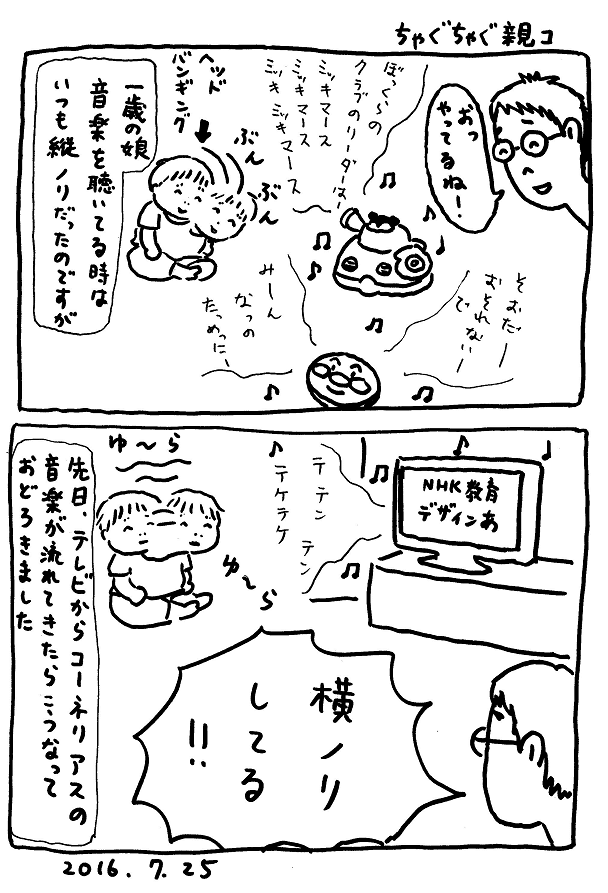 ちゃぐちゃぐ親コ
おっ
やってるねー!
ぼっくらの
クラブのリーダーは
ミッキマース
ミッキマース
ミッキミッキマース
ヘッド
バンギング
ぶん
ぶん
一歳の娘
音楽を聴いてる時は
いつも縦ノリだったのですが
そおだー
おそれないー
で
みーん
なっの
たっめっにー
NHK教育
デザインあ
テテンテン
テケラケ
ゆ〜ら
ゆ〜ら
先日、テレビからコーネリアスの
音楽が流れてきたらこうなって
おどろきました
横ノリ
してる
!!
2016.7.25